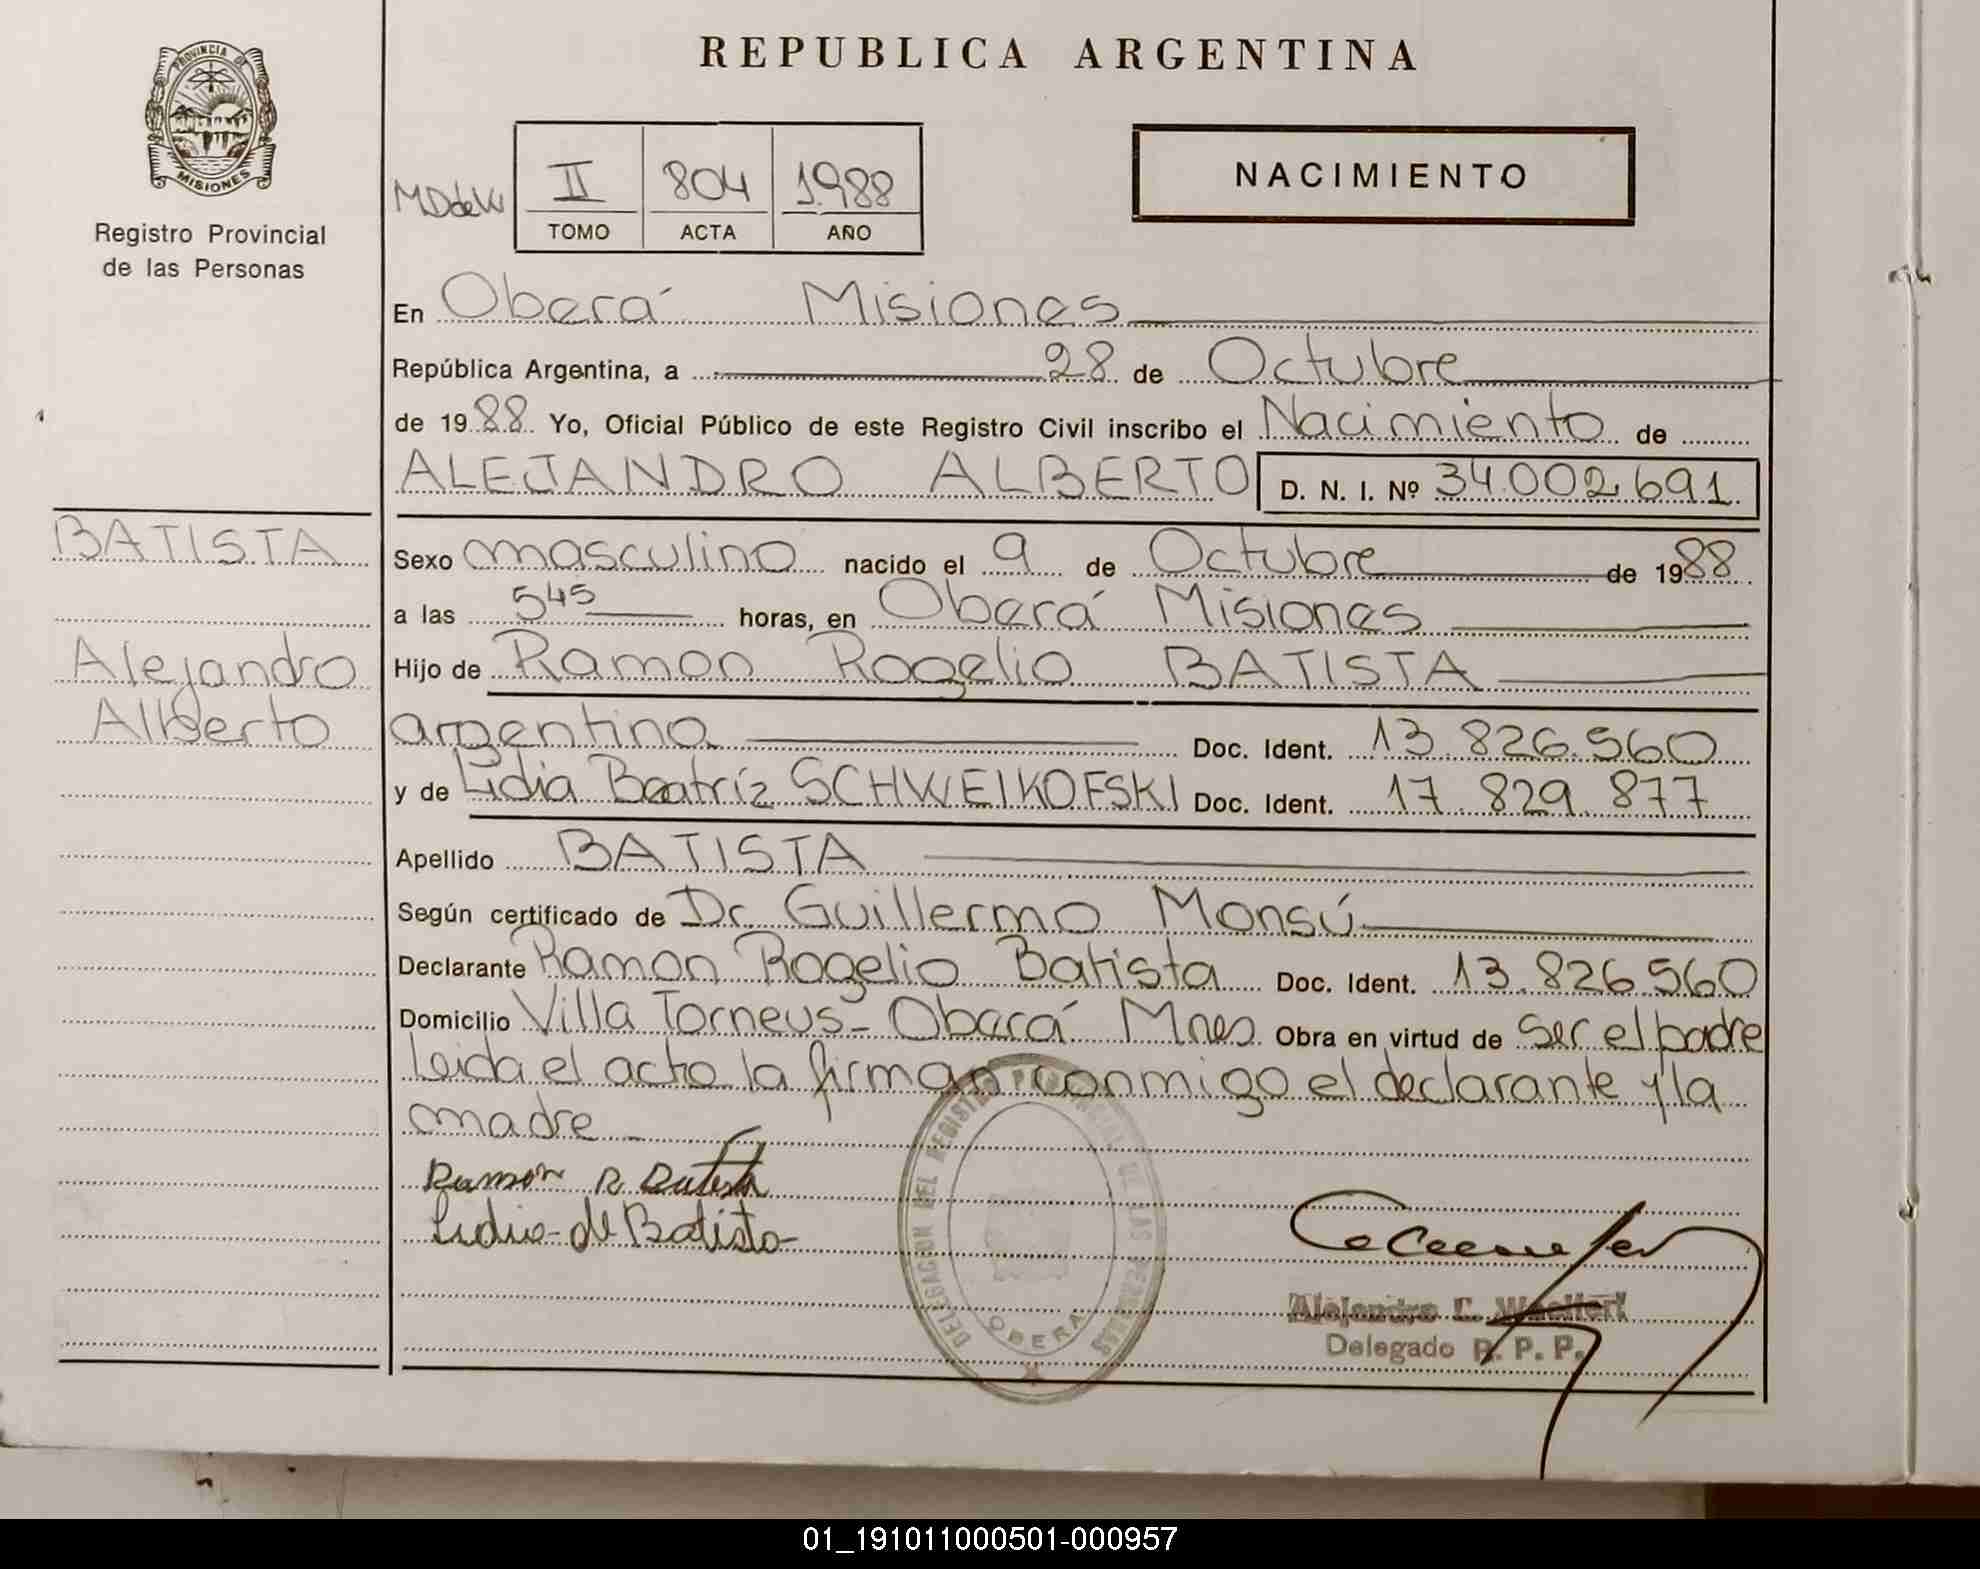 REPUBLICA ARGENTINA
PROVINCIA DE
MISIONES
Registro Provincial
de las Personas
II 804 1988
TOMO ACTA AÑO
NACIMIENTO
En Oberá Misiones
República Argentina, a 28 de Octubre
de 1988 Yo, Oficial Público de este Registro Civil inscribo el Nacimiento de
ALEJANDRO ALBERTO D. N. I. Nº 34.002.691
BATISTA
Alejandro
Alberto
Sexo masculino nacido el 9 de Octubre de 1988
a las 5 45 horas, en Oberá Misiones
Hijo de Ramon Rogelio BATISTA
argentina Doc. Ident. 13.826.560
y de Lidia Beatríz SCHWEIKOFSKI Doc. Ident. 17.829.877
Apellido BATISTA
Según certificado de Dr. Guillermo Monsú
Declarante Ramon Rogelio Batista Doc. Ident. 13.826.560
Domicilio Villa Torneus - Oberá Mnes Obra en virtud de Ser el padre
Leida el acto la firman conmigo el declarante y la
madre
Ramon R Batista
Lidia de Batista
DELEGACION DEL REGISTRO PROVINCIAL DE LAS PERSONAS
OBERA
Alejandro
Delegado R. P. P.
01_191011000501-000957